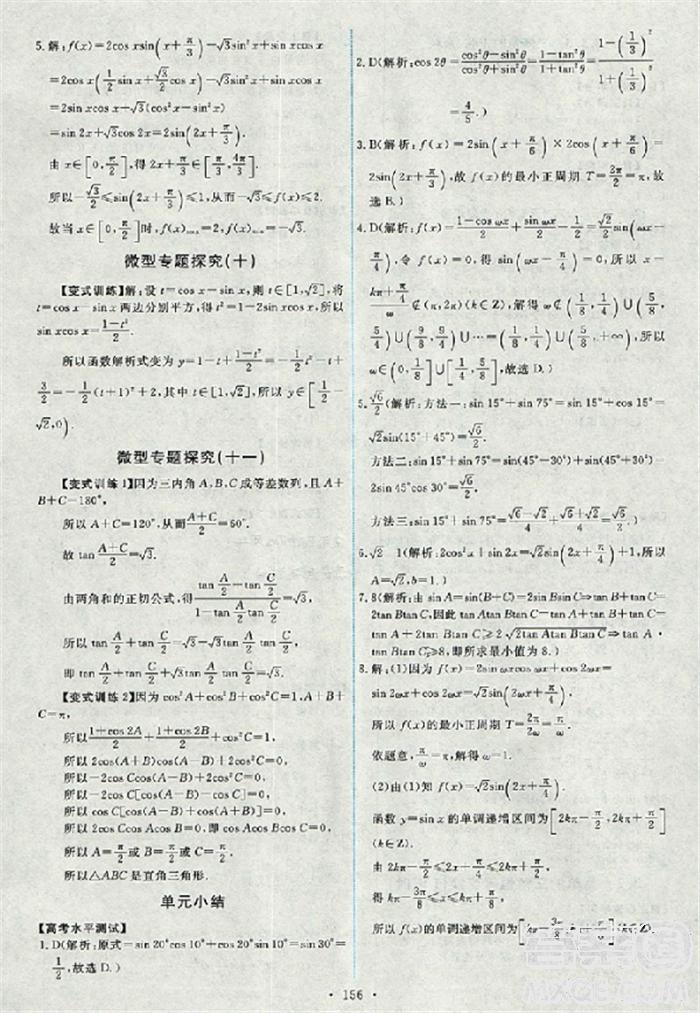 5. 解：f(x)=2cos xsin(x+π/3)-√3sin xcos x=
=2cos x(1/2 sin x+√3/2 cos x)-√3sin xcos x
=2sin xcos x+√3(cos²x-sin²x)
=sin 2x+√3cos 2x=2sin(2x+π/3).
由 x∈[0,π/2], 得 2x+π/3∈[π/3,4π/3].
所以-√3/2≤sin(2x+π/3)≤1,从而-√3≤f(x)≤2.
故当 x∈[0,π/2]时,f(x)max=2,f(x)min=-√3.
微型专题探究(十)
【变式训练】解:设 t=cos x-sin x,则 t∈[1,√2],将
t=cos x-sin x 两边分别平方,得 t²=1-2sin x,所以
sin xcos x=(1-t²)/2.
所以函数解析式变为 y=1-t-(1-t²)/2×2
3/2=-1/2(t+1)²+2,其中 t∈[1,√2],所以 y∈[-1/2-
√2,0].
微型专题探究(十一)
【变式训练 1】因为三内角 A,B,C 成等差数列,且 A+
B+C=180°,
所以 A+C=120°,从而(A+C)/2=60°.
故 tan (A+C)/2=√3.
由两角和的正切公式,得(tan A/2+tan C/2)/(1-tan A/2 tan C/2)=√3,
所以 tan A/2+tan C/2=√3-√3tan A/2 tan C/2,
即 tan A/2+tan C/2+√3tan A/2 tan C/2=√3.
【变式训练 2】因为 cos²A+cos²B+cos²C=1,A+B+
C=π,
所以(1+cos 2A)/2+(1+cos 2B)/2+cos²C=1.
所以 2cos(A+B)cos(A-B)+2cos²C=0.
所以-2cos Ccos(A-B)+2cos²C=0.
所以 cos C[cos(A-B)+cos(A+B)]=0.
所以 2cos Ccos Acos B=0,即 cos Acos Bcos C=0.
所以△ABC 是直角三角形.
单元小结
【高考水平测试】
1. D(解析:原式=sin 20°cos 10°+cos 20°sin 10°=sin 30°=
1/2,故选 D.)
2. D(解析:cos 2θ=(cos²θ-sin²θ)/(cos²θ+sin²θ)=(1-tan²θ)/(1+tan²θ)=(1-(1/3)²)/(1+(1/3)²)
=4/5.)
3. B(解析:f(x)=2sin(x+π/6)×2cos(x+π/6)=
2sin(2x+π/3),故 f(x)的最小正周期 T=2π/2=π,故
选 B.)
4. D(解析:f(x)=(1-cos ωx)/2+(sin ωx)/2-1/2=√2/2 sin(ωx-
π/4),令 f(x)=0,得 sin(ωx-π/4)=0,所以 x=
(kπ+π/4)/ω∉(π,2π)(k∈Z),解得 ω∉(1/8,1/4)∪(5/8,
5/4)∪(9/8,9/4)∪…=(1/8,1/4)∪(5/8,+∞),所以
ω∈(0,1/8]∪[1/4,5/8],故选 D.)
5. √6/2(解析:方法一:sin 15°+sin 75°=sin 15°+cos 15°=
√2sin(15°+45°)=√6/2.
方法二:sin 15°+sin 75°=
2sin 45°cos 30°=√6/2.
方法三:sin 15°+sin 75°=(√6-√2)/4+(√6+√2)/4=√6/2.)
6. √2 1(解析:2cos²x+sin 2x=√2sin(2x+π/4)+1,所以
A=√2,b=1.)
7. 8(解析:由 sin A=sin(B+C)=2sin Bsin C⇒tan B+tan C=
2tan Btan C,因此 tan Atan Btan C=tan A+tan B+tan C=
tan A+2tan Btan C≥2√(2tan Atan Btan C)⇒tan A·
tan Btan C≥8,即所求最小值为 8.)
8. 解:(1)因为 f(x)=2sin ωxcos ωx+cos 2ωx=
sin 2ωx+cos 2ωx=√2sin(2ωx+π/4),
所以 f(x)的最小正周期 T=2π/2ω=π/ω.
依题意,π/ω=π,解得 ω=1.
(2)由(1)知 f(x)=√2sin(2x+π/4).
函数 y=sin x 的单调递增区间为[2kπ-π/2,2kπ+π/2]
(k∈Z).
由 2kπ-π/2≤2x+π/4≤2kπ+π/2,
得 kπ-3π/8≤x≤kπ+π/8.
所以 f(x)的单调递增区间为[kπ-3π/8,kπ+π/8](k∈Z).
· 156 ·